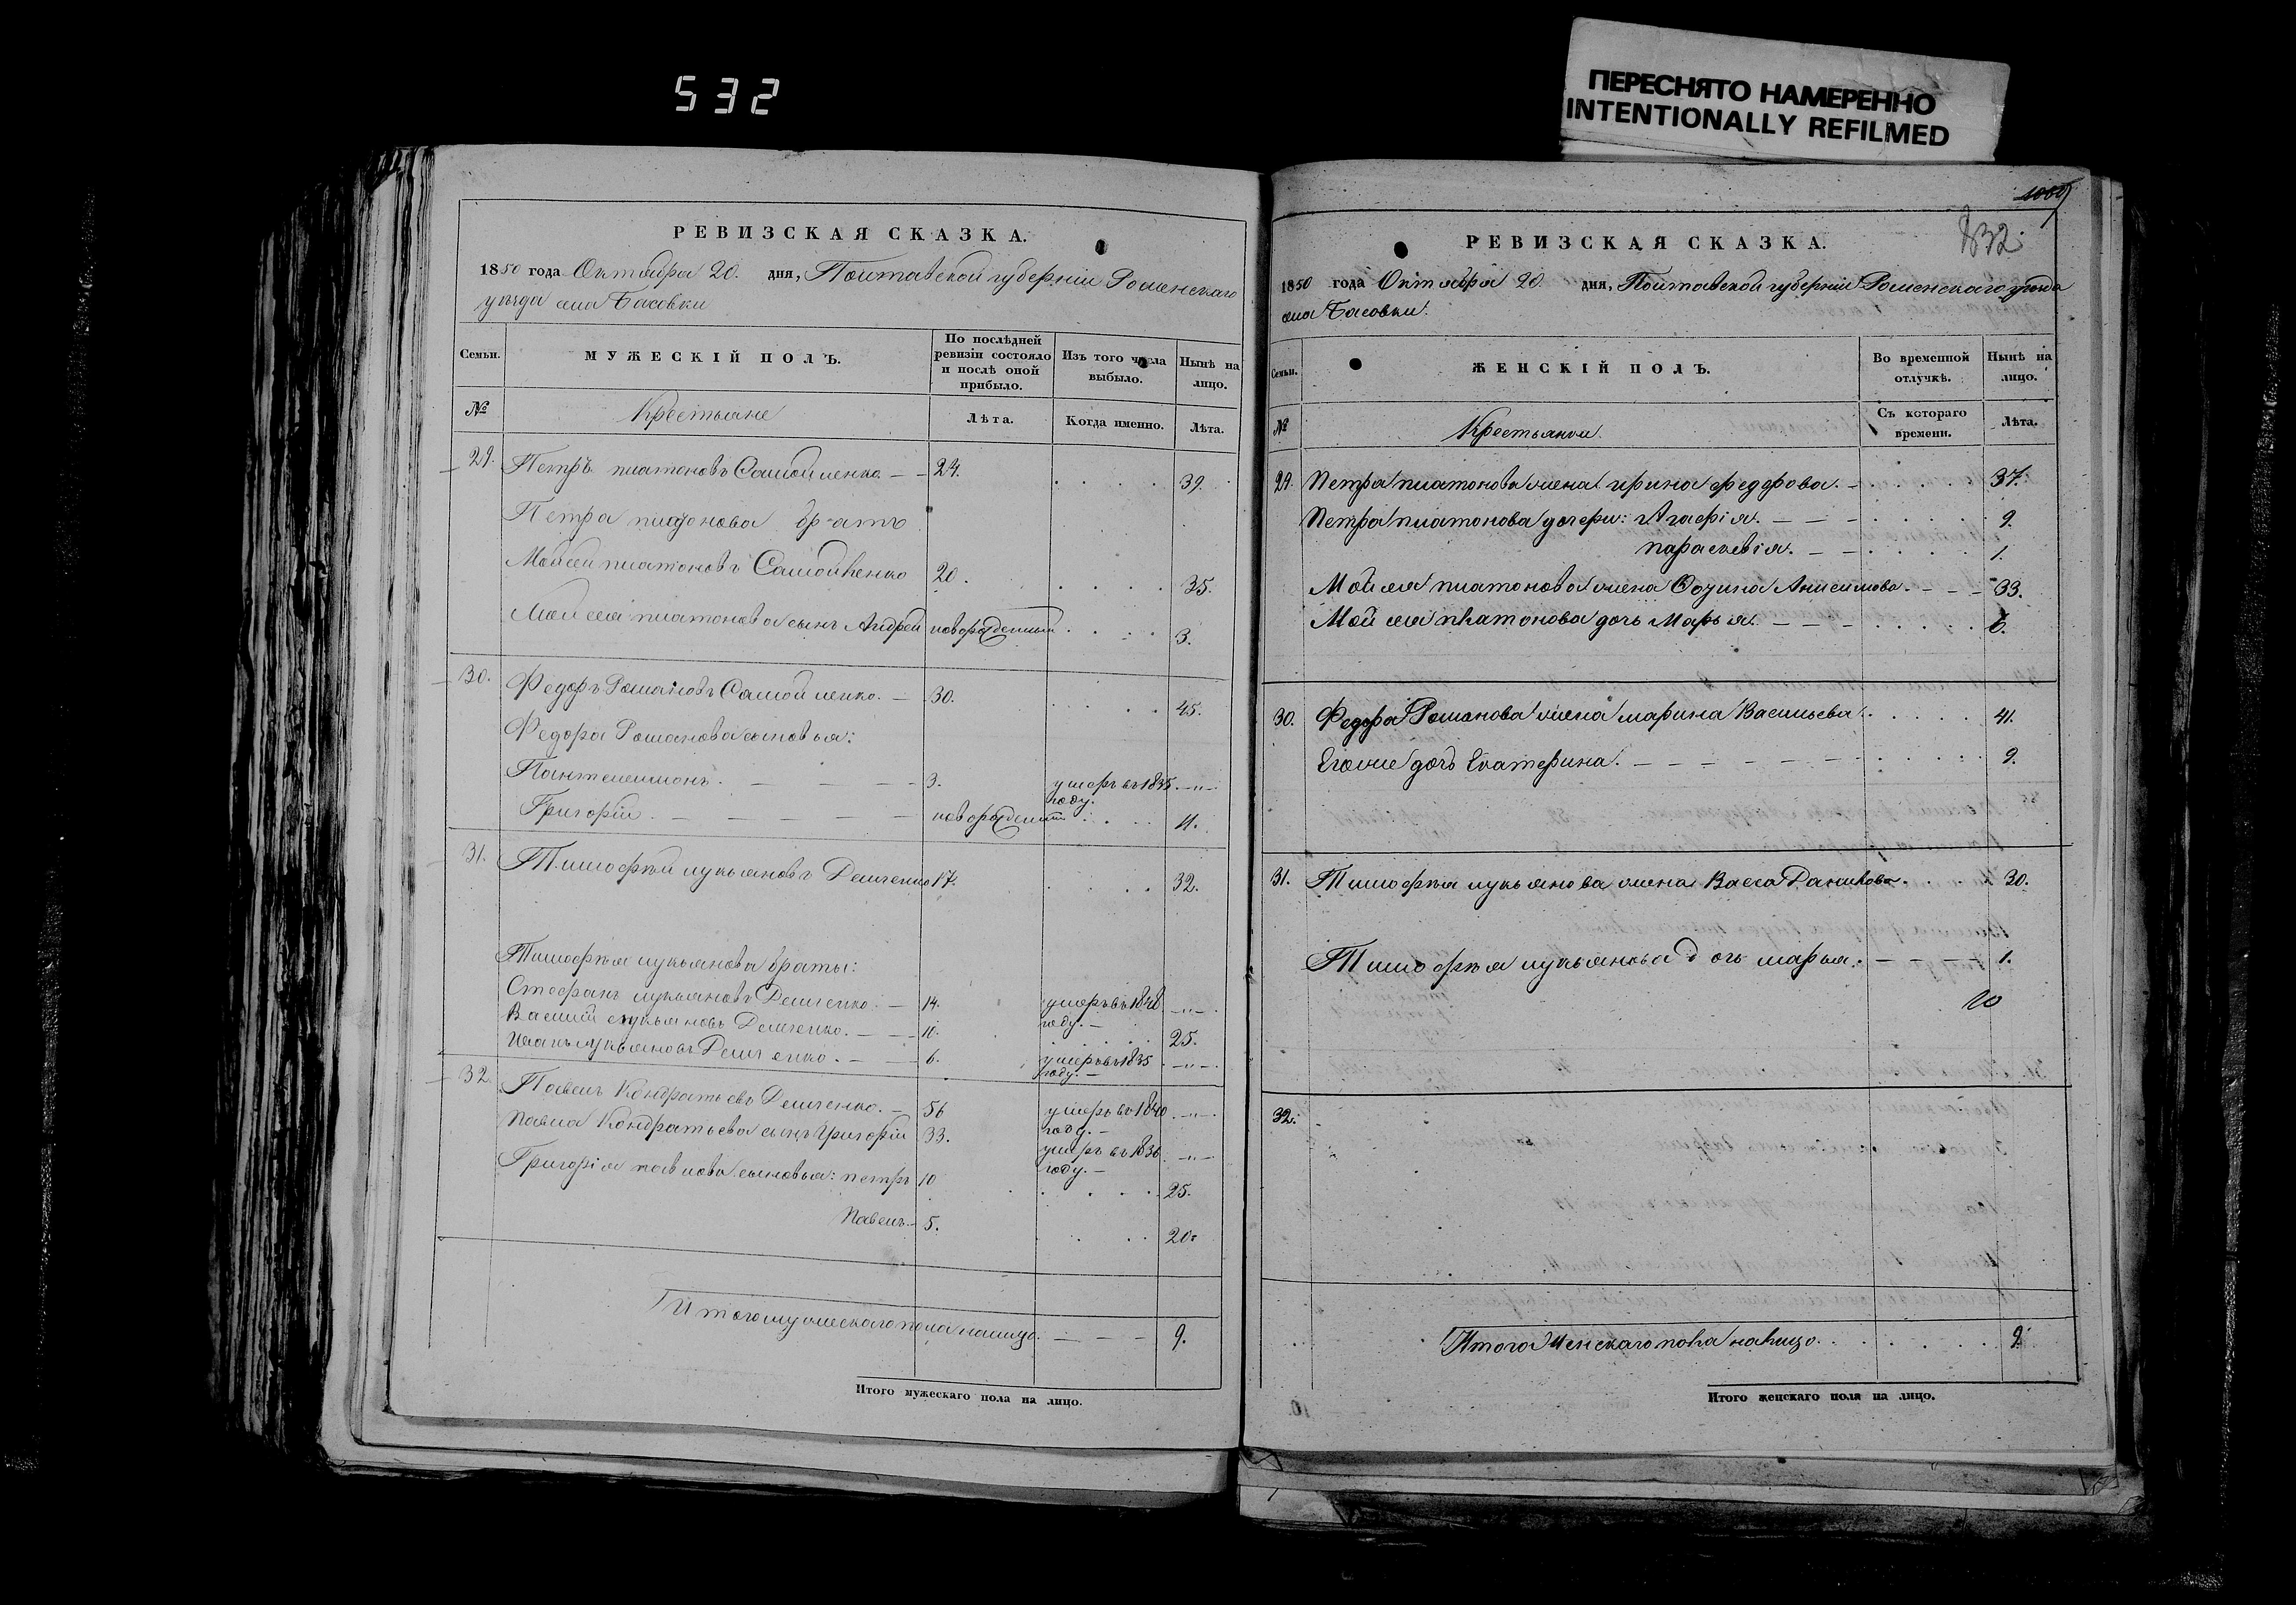 532
ПЕРЕСНЯТО НАМЕРЕННО
INTENTIONALLY REFILMED
РЕВИЗСКАЯ СКАЗКА.
1850 года Октября 20. дня, Полтавской губерніи Роменскаго
уѣзда села Басовки
Семьи.
МУЖЕСКІЙ ПОЛЪ.
По послѣдней ревизіи состояло и послѣ оной прибыло.
Изъ того числа выбыло.
Нынѣ на лицо.
№
Крестьяне
Лѣта.
Когда именно.
Лѣта.
29. Петръ платоновъ Самойленко. 24. 39.
Петра платонова братъ
Мойсей платоновъ Самойленко 20. 35.
Мойсея платонова сынъ Андрей новорожденный 3.
30. Федоръ Романовъ Самойленко. 30. 45.
Федора Романова сыновья:
Пантелеимонъ. 3. умеръ въ 1835 году.
Григорій новорожденный 11.
31. Тимофѣй лукьяновъ Демченко 17. 32.
Тимофѣя лукьянова браты:
Стефанъ лукьяновъ Демченко. 14. умеръ въ 1848 году.
Василій лукьяновъ Демченко. 10. 25.
Иванъ лукьяновъ Демченко. 6. умеръ въ 1835 году.
32. Павелъ Кондратьевъ Демченко. 56 умеръ въ 1840 году.
Павла Кондратьева сынъ Григорій 33. умеръ въ 1836 году.
Григорія павлова сыновья: петръ 10 25.
Павелъ 5. 20.
Итого мужескаго пола налицо. 9.
Итого мужескаго пола на лицо.
1069
832.
РЕВИЗСКАЯ СКАЗКА.
1850 года Октября 20 дня, Полтавской губерніи Роменскаго уѣзда
села Басовки.
Семьи.
ЖЕНСКІЙ ПОЛЪ.
Во временной отлучкѣ.
Нынѣ на лицо.
№
Крестьянки.
Съ котораго времени.
Лѣта.
29. Петра платонова жена ирина федорова. 37.
Петра платонова дочери: Агафія. 9.
параскевія. 1.
Мойсея платонова жена Анисимова. 33.
Мойсея платонова дочь Марья. 6.
30. Федора Романова жена марина Васильева 41.
Егоже дочь Екатерина. 9.
31. Тимофѣя лукьянова жена Васса Данилова. 30.
Тимофѣя лукьянова дочь марья. 1.
10
32.
Итого Женскаго пола налицо. 9.
Итого женскаго пола на лицо.